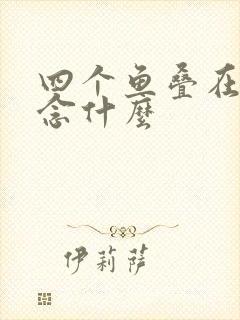 四个鱼叠在
念什麼
伊莉萨